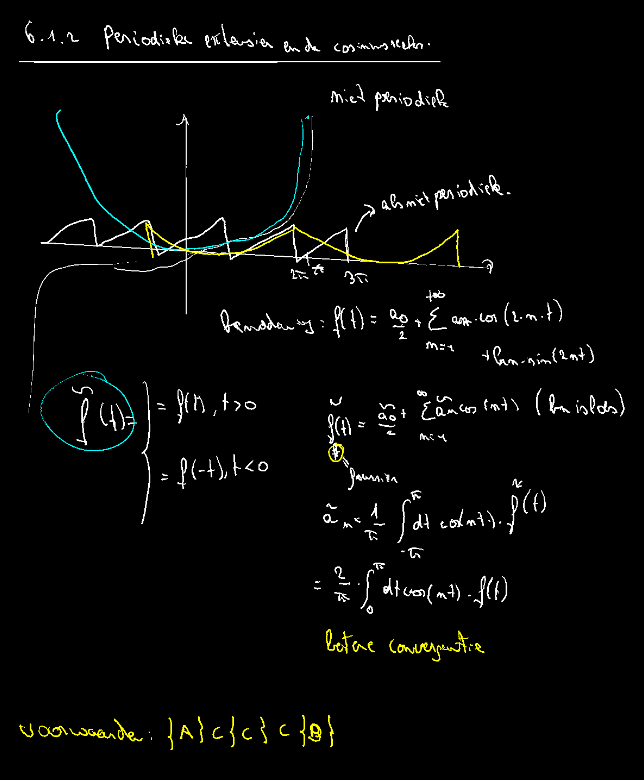 6.1.2 Periodieke extensies en de cosinusreeks.
niet periodiek
als niet periodiek.
2π 3π
: f(t) = a₀/2 + Σ_{n=1}^{+∞} aₙ·cos(2·n·t)
+ bₙ·sin(2nt)
f̃(t) = { = f(t), t>0
= f(-t), t<0
f̃(t) = ã₀/2 + Σ_{n=1}^{∞} ãₙ cos(nt) (bₙ is
ãₙ = 1/π ∫_{-π}^{π} dt cos(nt) · f̃(t)
= 2/π · ∫_0^π dt cos(nt) · f(t)
betere convergentie
voorwaarde: {A} ⊂ {C} ⊂ {B}